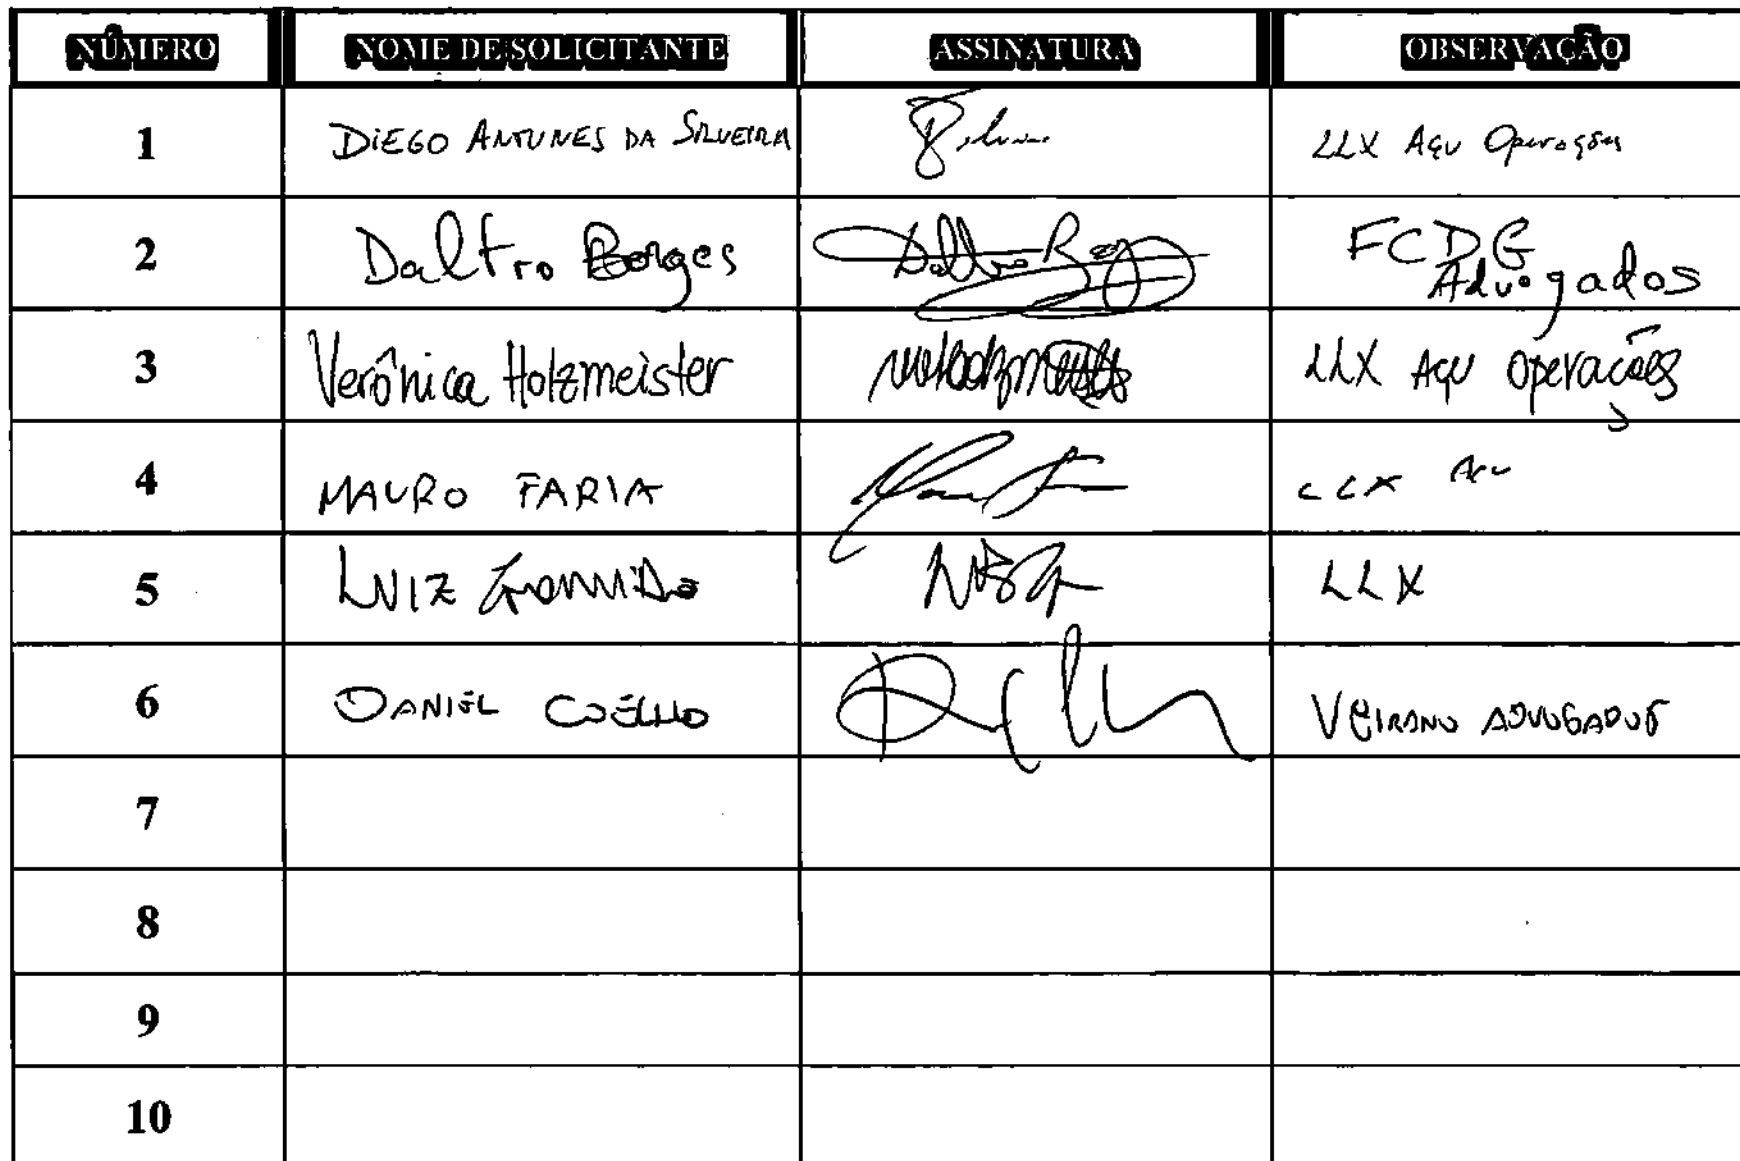 NÚMERO NOME DE SOLICITANTE ASSINATURA OBSERVAÇÃO
1 DIEGO ANTUNES DA SILVEIRA LLX Açu Operações
2 Daltro Borges Daltro Borges FCDG
Advogados
3 Verônica Holzmeister LLX Açu Operações
4 MAURO FARIA LLX Açu
5 LUIZ LLX
6 DANIEL COELHO VEIRANO ADVOGADOS
7
8
9
10